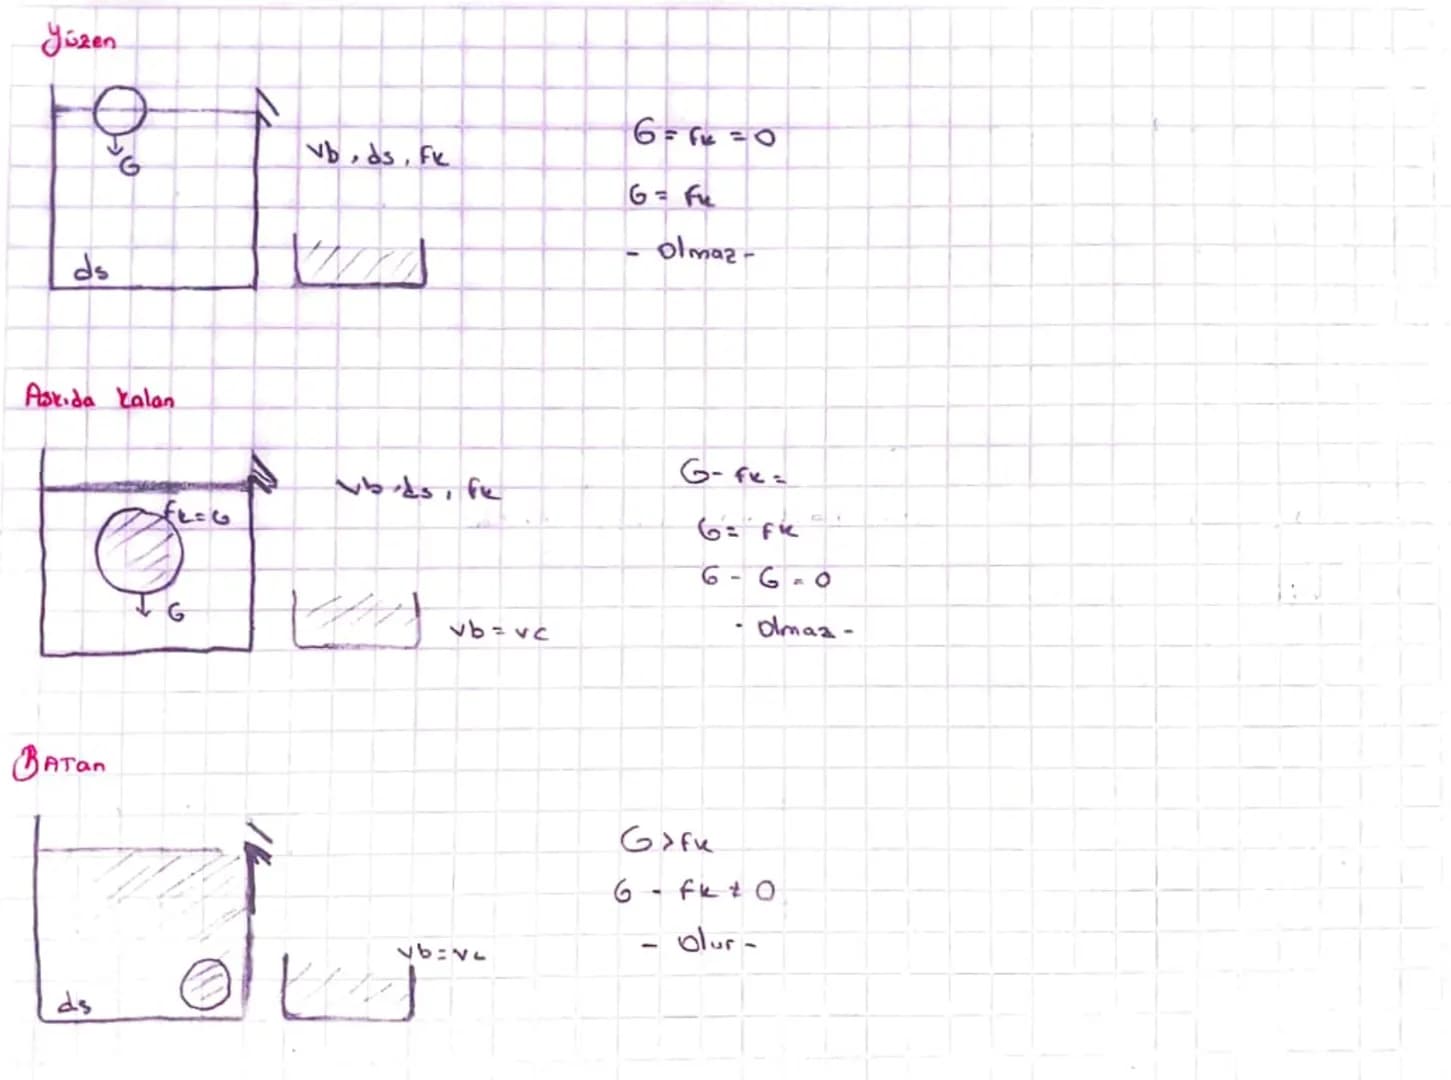 Yüzen
G
Vb, ds, fk
ds
G = fk = 0
G = fk
- Olmaz -
Askıda kalan
fk = G
G
Vb.ds, fk
Vb = Vc
G - fk =
G = fk
G - G = 0
- Olmaz -
BATan
ds
Vb = Vc
G > fk
G - fk ≠ 0
- Olur -